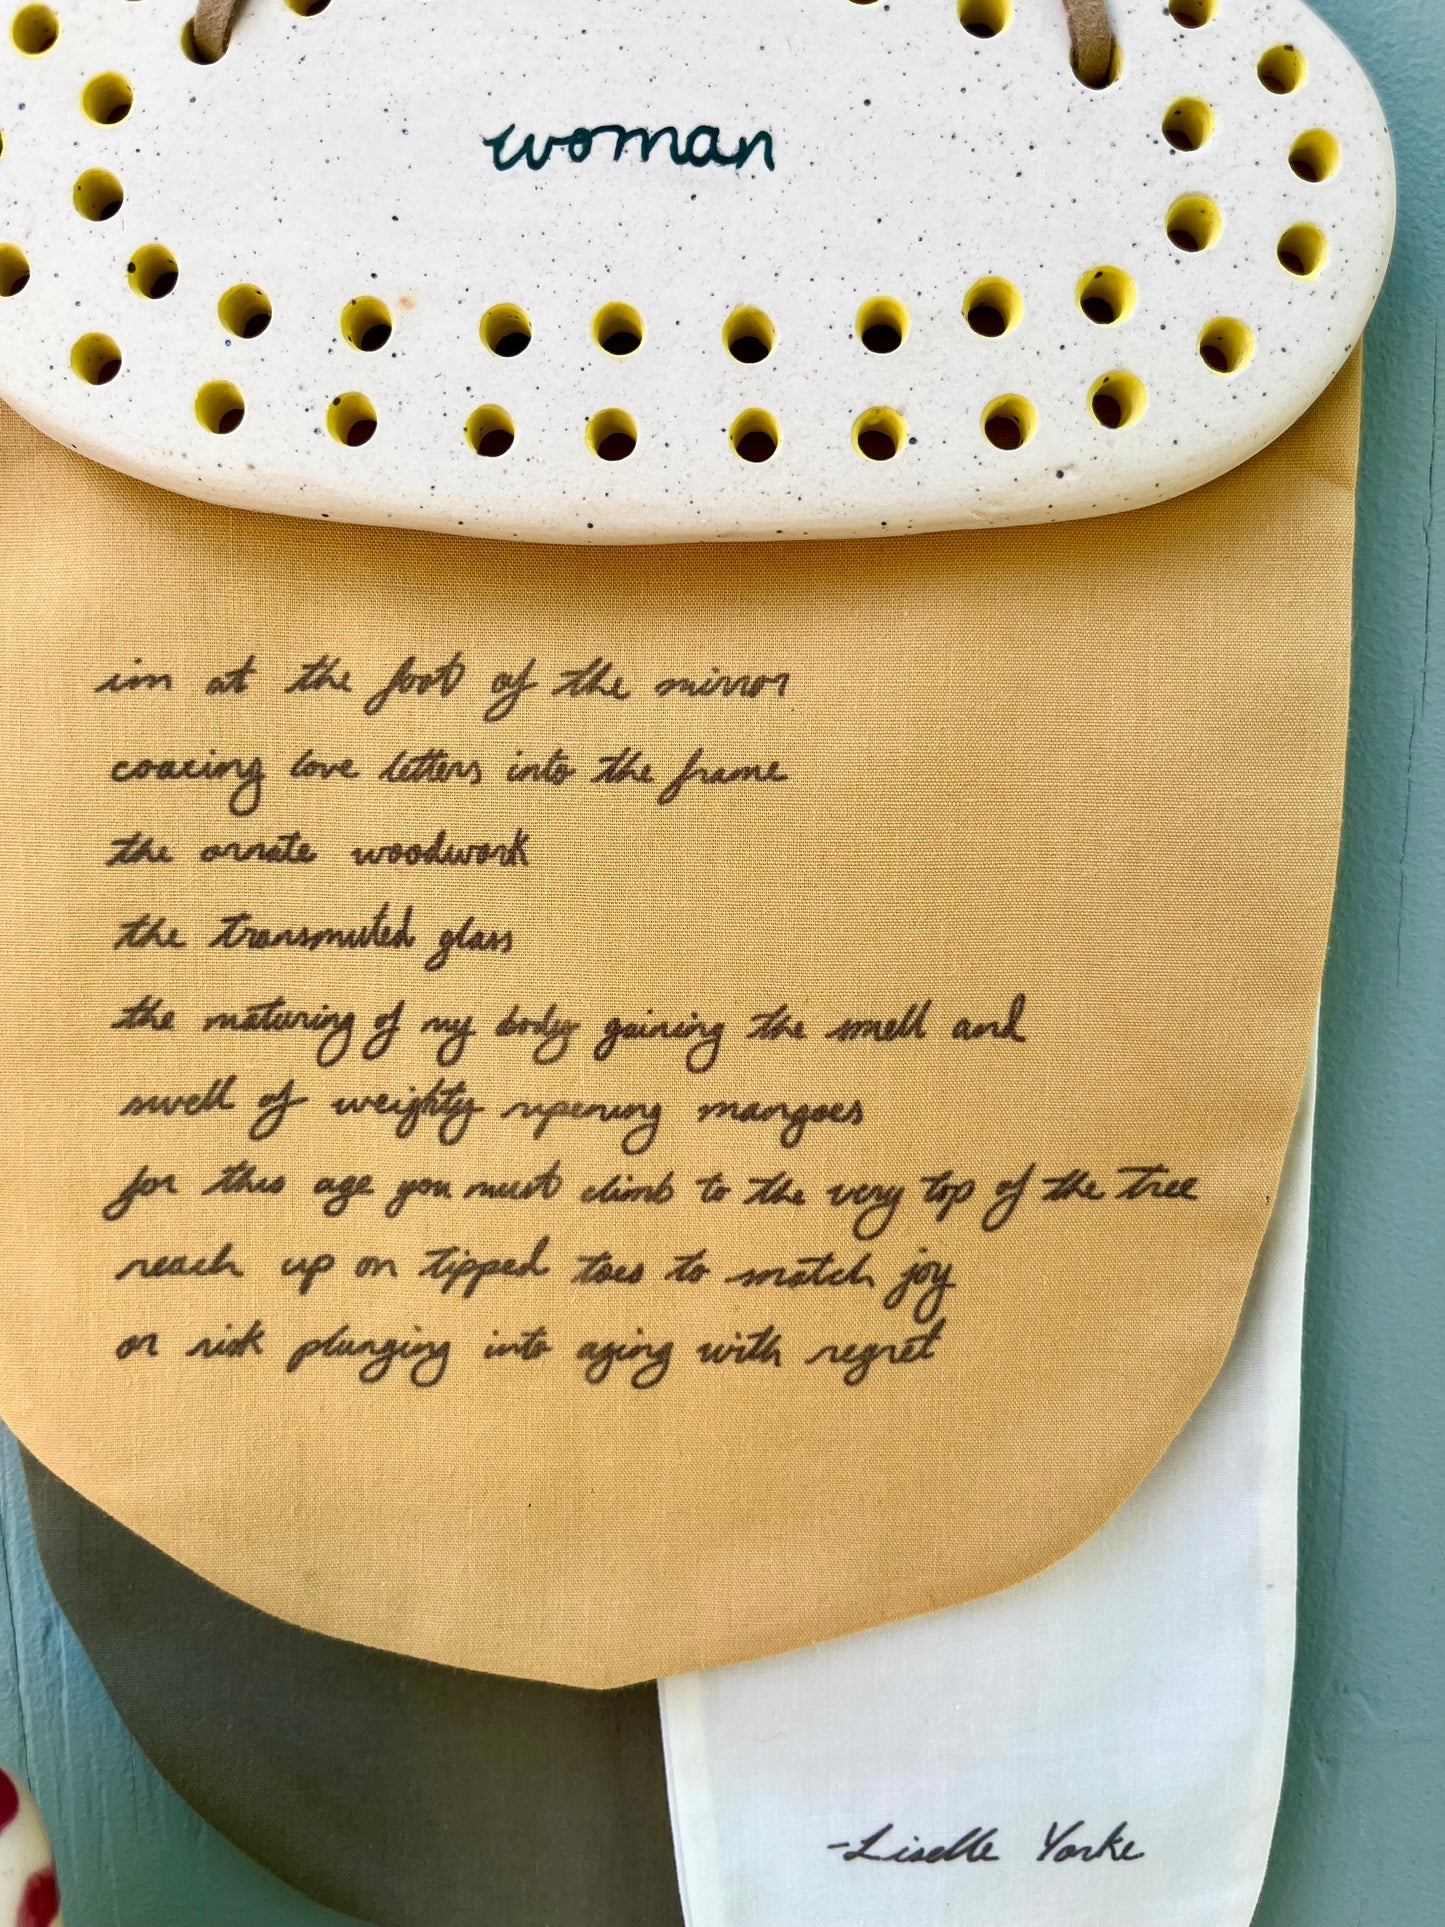 woman
im at the foot of the mirror
coaxing love letters into the frame
the ornate woodwork
the transmuted glass
the maturing of my body gaining the smell and
swell of weighty ripening mangoes
for this age you must climb to the very top of the tree
reach up on tipped toes to match joy
or risk plunging into aging with regret
-Liselle Yorke